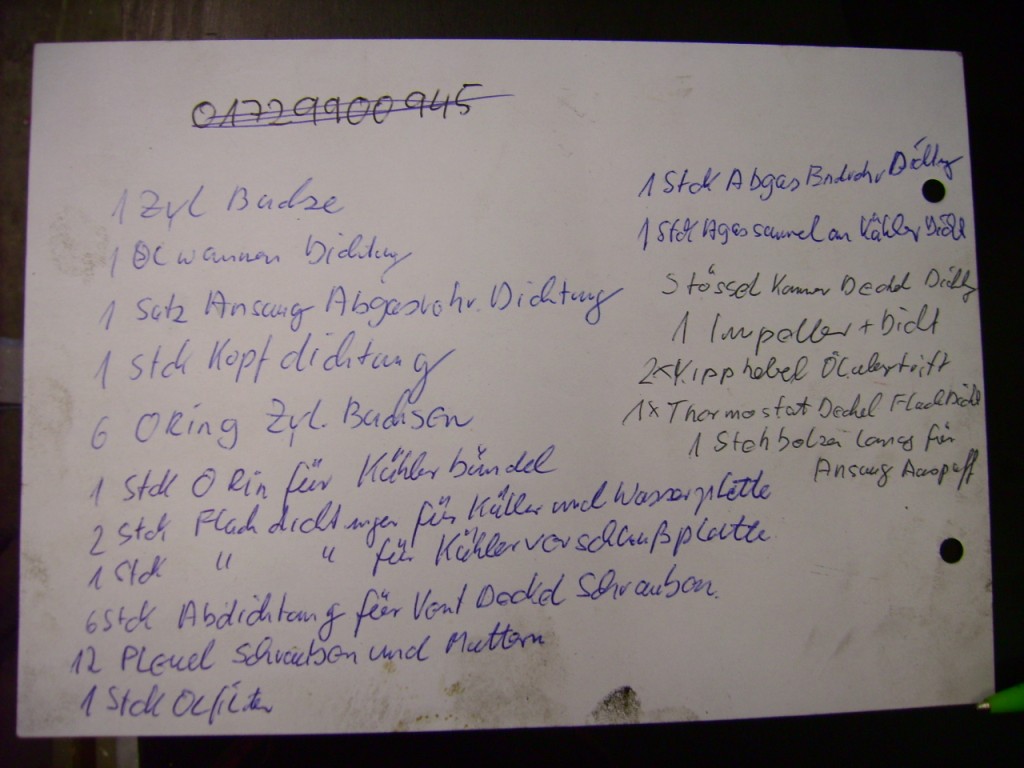 01729900945
1 Zyl Buchse
1 Ölwannen Dichtung
1 Satz Ansaug Abgasrohr. Dichtung
1 Stck Kopfdichtung
6 O Ring Zyl. Buchsen
1 Stck O Rin für Kühlerbündel
2 Stck Flachdichtungen für Kühler und Wasserplatte
1 Stck " " für Kühlerverschlußplatte
6 Stck Abdichtung für Vent Deckel Schrauben.
12 Pleuel Schrauben und Muttern
1 Stck Ölfilter
1 Stck Abgas Dichtg
1 Stck Agassammel an Kühler Dicht
Stössel Kammer Deckel Dichtg
1 Impeller + Dicht
2x Kipphebel
1x Thermostat Deckel Flach Dicht
1 Stehbolzen lang für
Ansaug Auspuff